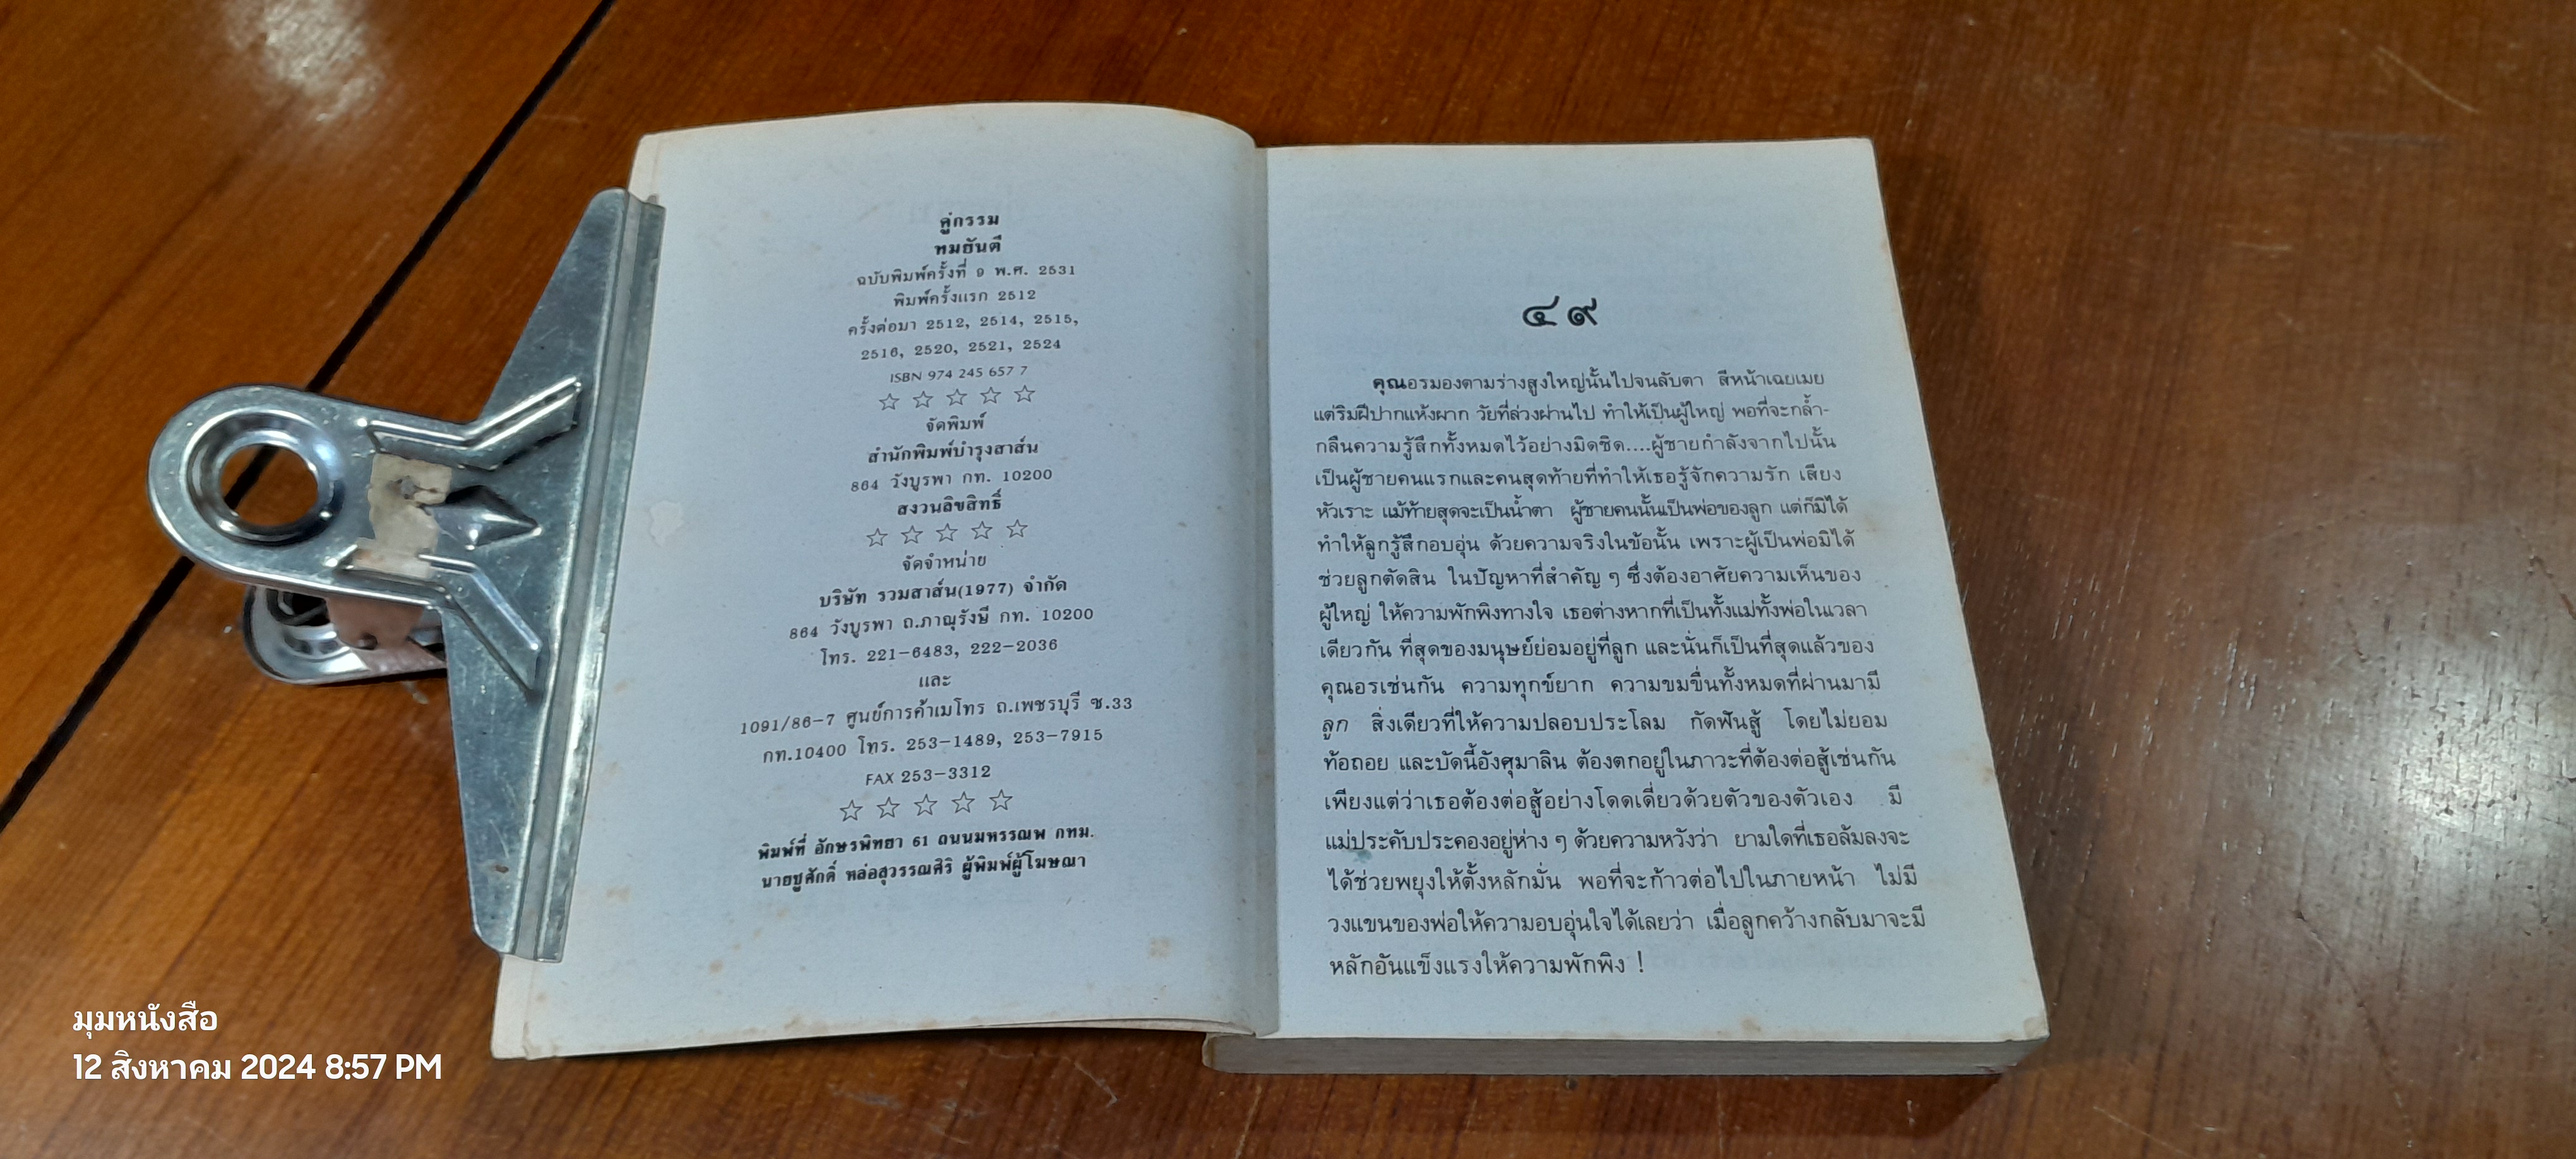 คู่กรรม
ทมยันตี
ฉบับพิมพ์ครั้งที่ 9 พ.ศ. 2531
พิมพ์ครั้งแรก 2512
ครั้งต่อมา 2512, 2514, 2515,
2516, 2520, 2521, 2524
ISBN 974 245 657 7
☆ ☆ ☆ ☆ ☆
จัดพิมพ์
สำนักพิมพ์บำรุงสาส์น
864 วังบูรพา กท. 10200
สงวนลิขสิทธิ์
☆ ☆ ☆ ☆ ☆
จัดจำหน่าย
บริษัท รวมสาส์น(1977) จำกัด
864 วังบูรพา ถ.ภาณุรังษี กท. 10200
โทร. 221-6483, 222-2036
และ
1091/86-7 ศูนย์การค้าเมโทร ถ.เพชรบุรี ซ.33
กท.10400 โทร. 253-1489, 253-7915
FAX 253-3312
☆ ☆ ☆ ☆ ☆
พิมพ์ที่ อักษรพิทยา 61 ถนนมหรรณพ กทม.
นายชูศักดิ์ หล่อสุวรรณศิริ ผู้พิมพ์ผู้โฆษณา
๔๙
คุณอรมองตามร่างสูงใหญ่นั้นไปจนลับตา สีหน้าเฉยเมย
แต่ริมฝีปากแห้งผาก วัยที่ล่วงผ่านไป ทำให้เป็นผู้ใหญ่ พอที่จะกล้ำ-
กลืนความรู้สึกทั้งหมดไว้อย่างมิดชิด....ผู้ชายกำลังจากไปนั้น
เป็นผู้ชายคนแรกและคนสุดท้ายที่ทำให้เธอรู้จักความรัก เสียง
หัวเราะ แม้ท้ายสุดจะเป็นน้ำตา ผู้ชายคนนั้นเป็นพ่อของลูก แต่ก็มิได้
ทำให้ลูกรู้สึกอบอุ่น ด้วยความจริงในข้อนั้น เพราะผู้เป็นพ่อมิได้
ช่วยลูกตัดสิน ในปัญหาที่สำคัญ ๆ ซึ่งต้องอาศัยความเห็นของ
ผู้ใหญ่ ให้ความพักพิงทางใจ เธอต่างหากที่เป็นทั้งแม่ทั้งพ่อในเวลา
เดียวกัน ที่สุดของมนุษย์ย่อมอยู่ที่ลูก และนั่นก็เป็นที่สุดแล้วของ
คุณอรเช่นกัน ความทุกข์ยาก ความขมขื่นทั้งหมดที่ผ่านมามี
ลูก สิ่งเดียวที่ให้ความปลอบประโลม กัดฟันสู้ โดยไม่ยอม
ท้อถอย และบัดนี้อังศุมาลิน ต้องตกอยู่ในภาวะที่ต้องต่อสู้เช่นกัน
เพียงแต่ว่าเธอต้องต่อสู้อย่างโดดเดี่ยวด้วยตัวของตัวเอง มี
แม่ประคับประคองอยู่ห่าง ๆ ด้วยความหวังว่า ยามใดที่เธอล้มลงจะ
ได้ช่วยพยุงให้ตั้งหลักมั่น พอที่จะก้าวต่อไปในภายหน้า ไม่มี
วงแขนของพ่อให้ความอบอุ่นใจได้เลยว่า เมื่อลูกคว้างกลับมาจะมี
หลักอันแข็งแรงให้ความพักพิง !
มุมหนังสือ
12 สิงหาคม 2024 8:57 PM